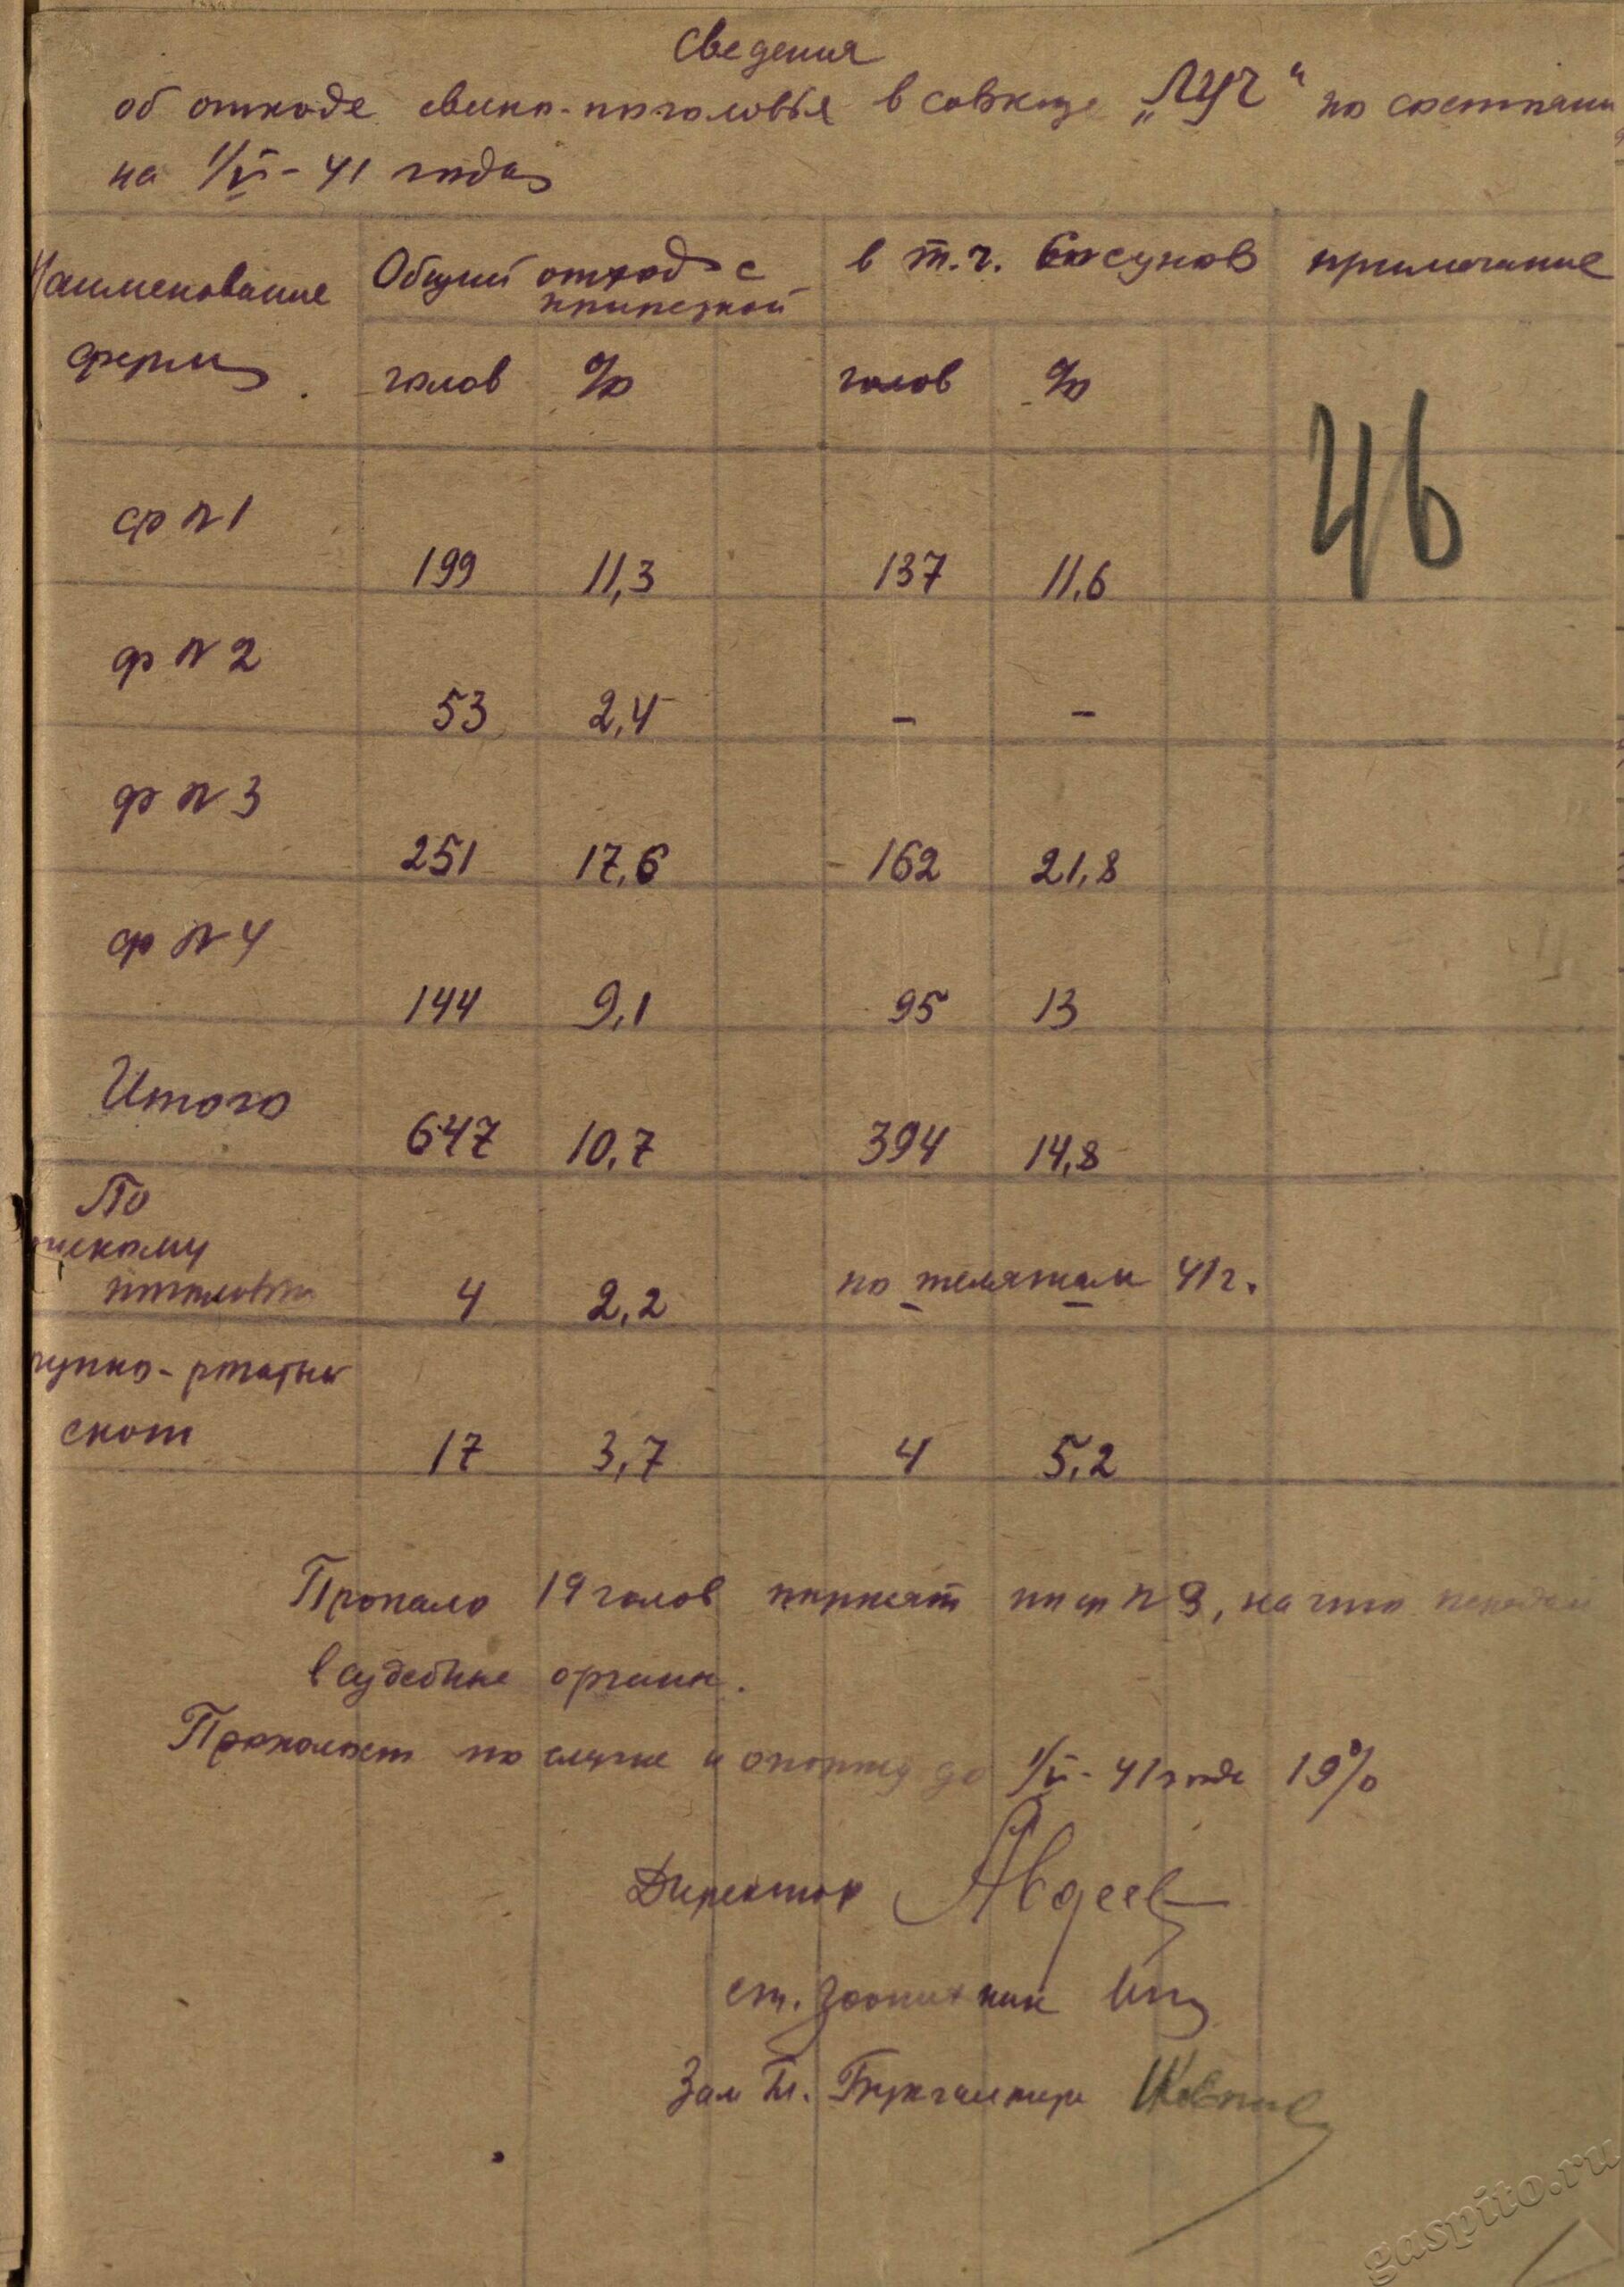 Сведения
об отходе свино-поголовья в совхозе „ЛУЧ“ по состоянию
на 1/VI-41 года
Наименование Общий отход с прирезкой в т.ч. сосунов примечание
ферм голов % голов %
46
ф №1 199 11,3 137 11,6
ф №2 53 2,4 – –
ф №3 251 17,6 162 21,8
ф №4 144 9,1 95 13
Итого 647 10,7 394 14,8
По
поголовью 4 2,2 – –
по телятам 41г.
рогатый
скот 17 3,7 4 5,2
Пропало 19 голов поросят по ф №3, на что
в судебные органы.
Прохолост по случке и опоросу до 1/VI-41 года 19%
Директор Авдеев
ст. зоотехник
Зам Гл. Бухгалтера
gaspito.ru